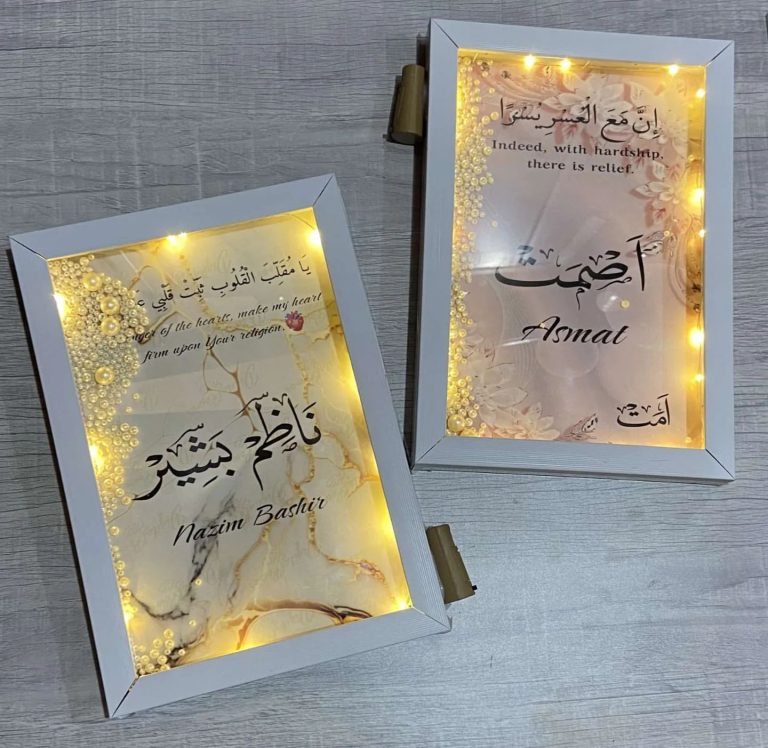 يَا مُقَلِّبَ الْقُلُوبِ ثَبِّتْ قَلْبِي ع
of the hearts, make my heart
firm upon Your religion.
نَاظِمْ بَشِيْر
Nazim Bashir
إِنَّ مَعَ الْعُسْرِ يُسْرًا
Indeed, with hardship,
there is relief.
اَصِمَت
Asmat
اَمَت